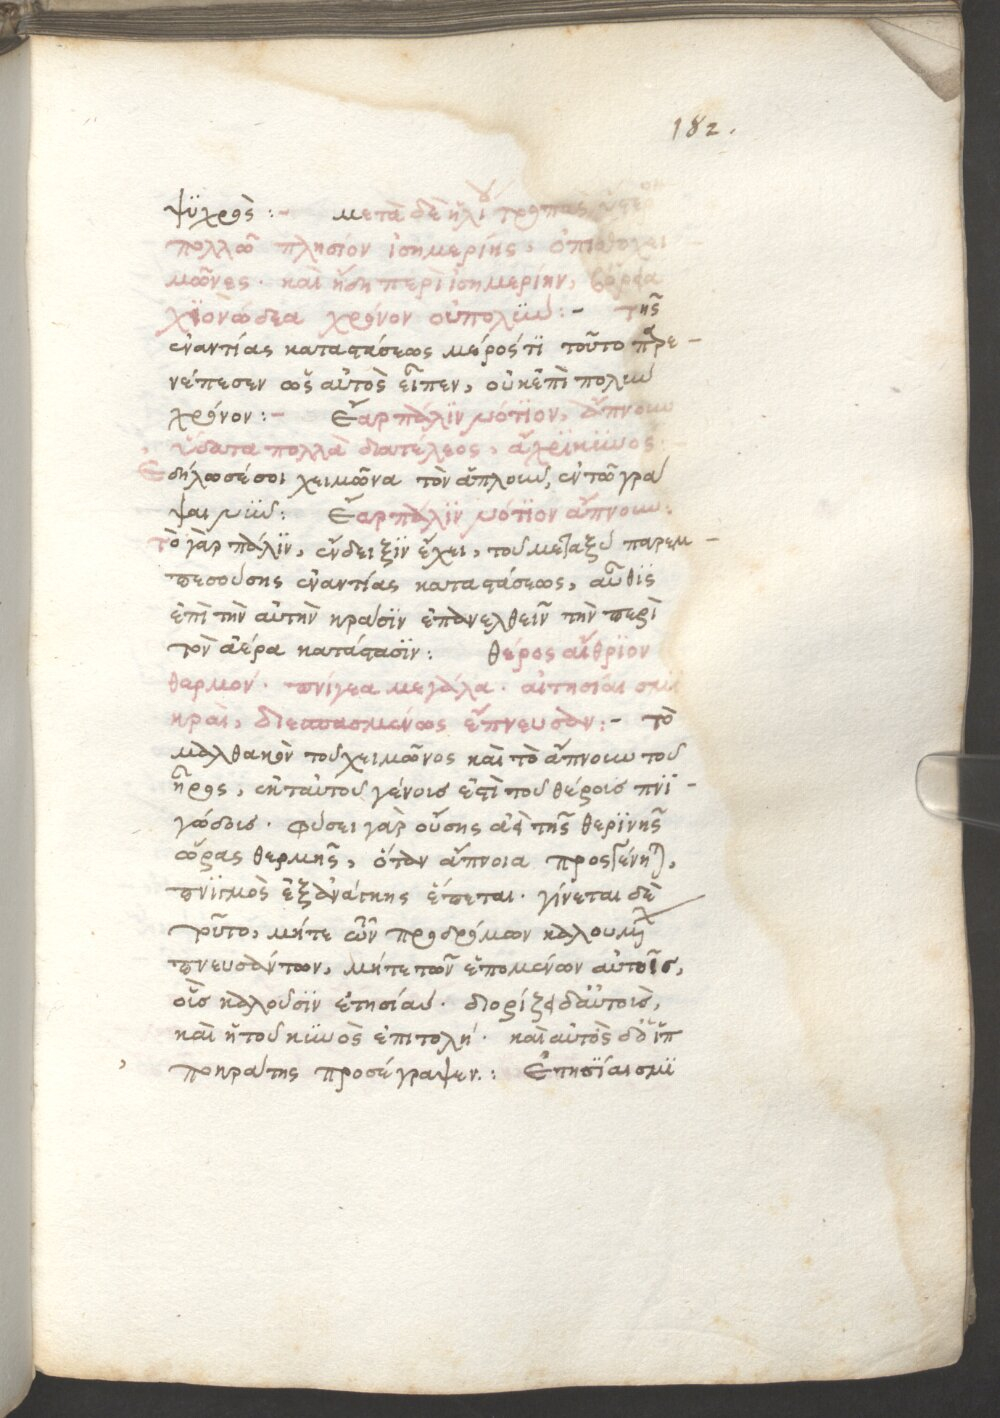 182.
ψϋχρὸς :- μετὰ δὲ ἡλίου τροπὰς ὕστερον
πολλῶ πλησίον ἰσημερίης, ὀπισθοχει-
μῶνες. καὶ ἤδη περὶ ἰσημερίην, βόρεα
χϊονώδεα χρόνον οὐ πολύν :- τῆς
ἐναντίας καταστάσεως μέρος τϊ τοῦτο παρε-
νέπεσεν ὡς αὐτὸς εἶπεν, οὐκ ἐπὶ πολὺν
χρόνον :- Ἔαρ πάλϊν νότϊον, ἄπνουν
ὕδατα πολλὰ διατέλεος, ἄχρϊ κϋνός.
Ἐδήλωσέ σοι χειμῶνα τὸν ἄπλουν, ἐν τῶ γρά
ψαι νῦν : Ἔαρ πάλϊν νότϊον ἄπνουν :
τὸ γὰρ πάλϊν, ἔνδειξϊν ἔχει, τοῦ μεταξὺ παρεμ-
πεσούσης ἐναντίας καταστάσεως, αὖθϊς
ἐπὶ τὴν αὐτὴν κρᾶσϊν ἐπανελθεῖν τὴν περὶ
τὸν ἀέρα κατάστασϊν : θέρος αἴθρϊον
θερμόν. πνίγεα μεγάλα. αἱ ἐτησίαι σμι
κραὶ, διεσπασμένως ἔπνευσαν :- τὸ
μαλθακὸν τοῦ χειμῶνος καὶ τὸ ἄπνουν τοῦ
ἦρος, ἐπὶ ταὐτοῦ γένοις ἐστὶ τοῦ θέροις πνϊ-
γώδοις. φύσει γὰρ οὔσης ἀεὶ τῆς θερϊνῆς
ὥρας θερμῆς, ὅταν ἄπνοια προσγένηται,
πνϊγμὸς ἐξ ἀνάγκης ἕπεται. γίνεται δὲ
τοῦτο, μήτε τῶν προδρόμων καλουμένων
πνευσάντων, μήτε τῶν ἑπομένων αὐτοῖς,
οὓς καλοῦσϊν ἐτησίας. διορίζει δ' αὐτοὺς,
καὶ ἡ τοῦ κϋνὸς ἐπιτολή. καὶ αὐτὸς δὲ ὁ ἱπ
ποκράτης προσέγραψεν. : Ἐτησΐαι σμϊ